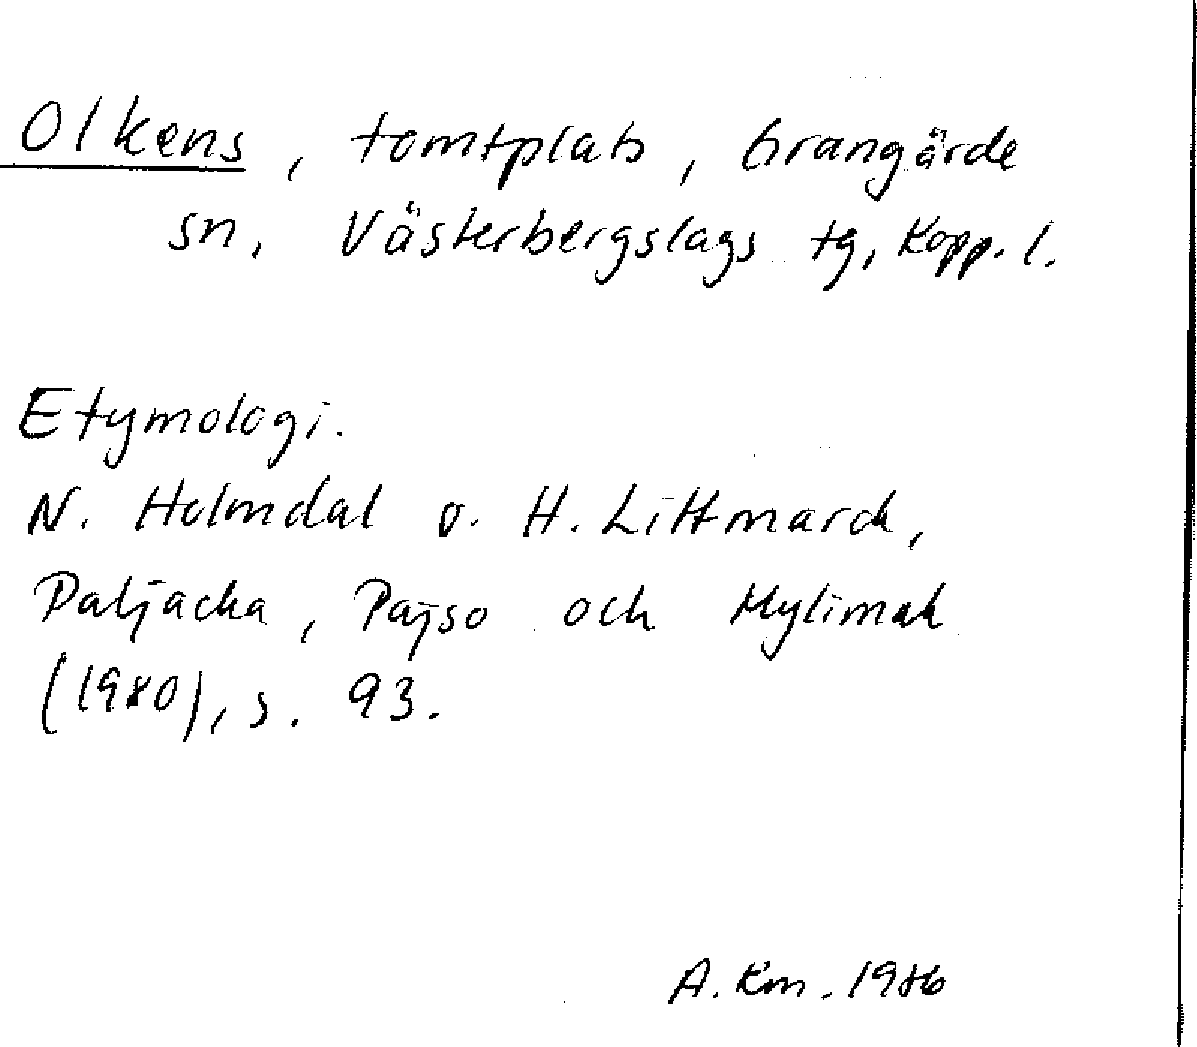 Olkens, tomtplats, Grangärde
sn, Västerbergslags tg, Kopp. l.
Etymologi.
N. Holmdal o. H. Littmarck,
Patjacka, Pajso och Mylimak
(1980), s. 93.
A. Km. 1986